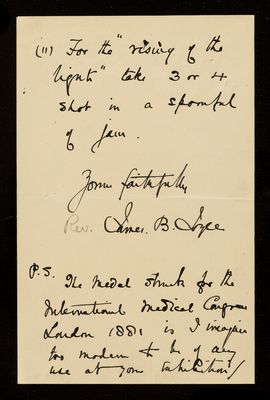 (11) For the "rising of the
lights" take 3 or 4
shot in a spoonful
of jam.
Yours faithfully
Rev. James. B. Joyce
P.S. The medal struck for the
International Medical Congress
London 1881 is I imagine
too modern to be of any
use at your Exhibition/